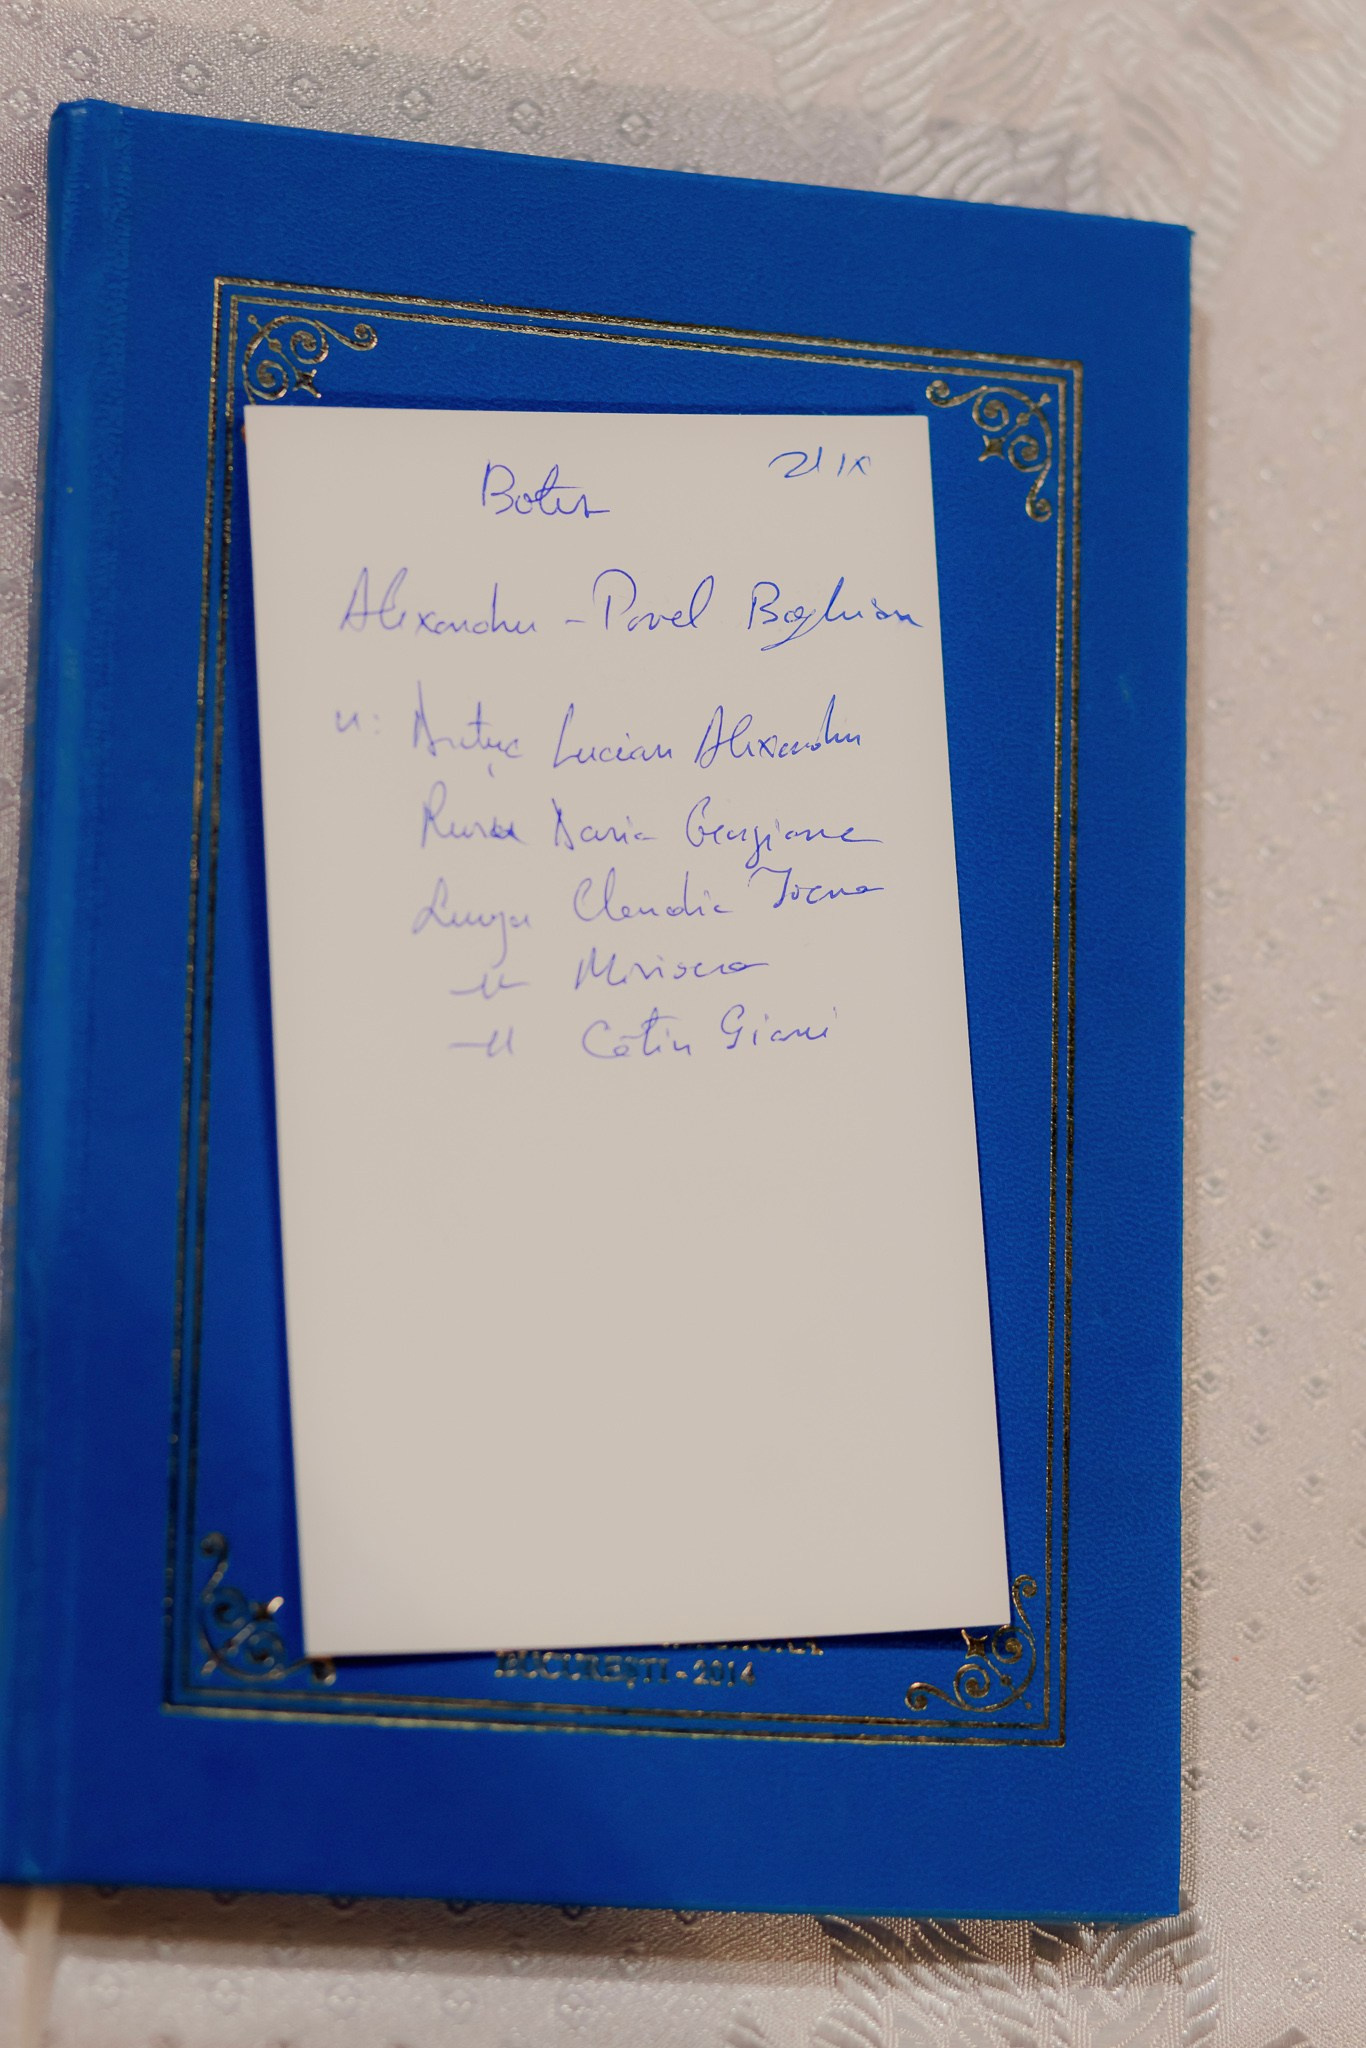 Botez
21 IX
Alexandru - Pavel Boghian
n: Lucian Alexandru
Daria Georgiana
Lungu Claudia Ioana
—"— Miriana
—"— Cătălin Giani
BUCUREȘTI - 2014